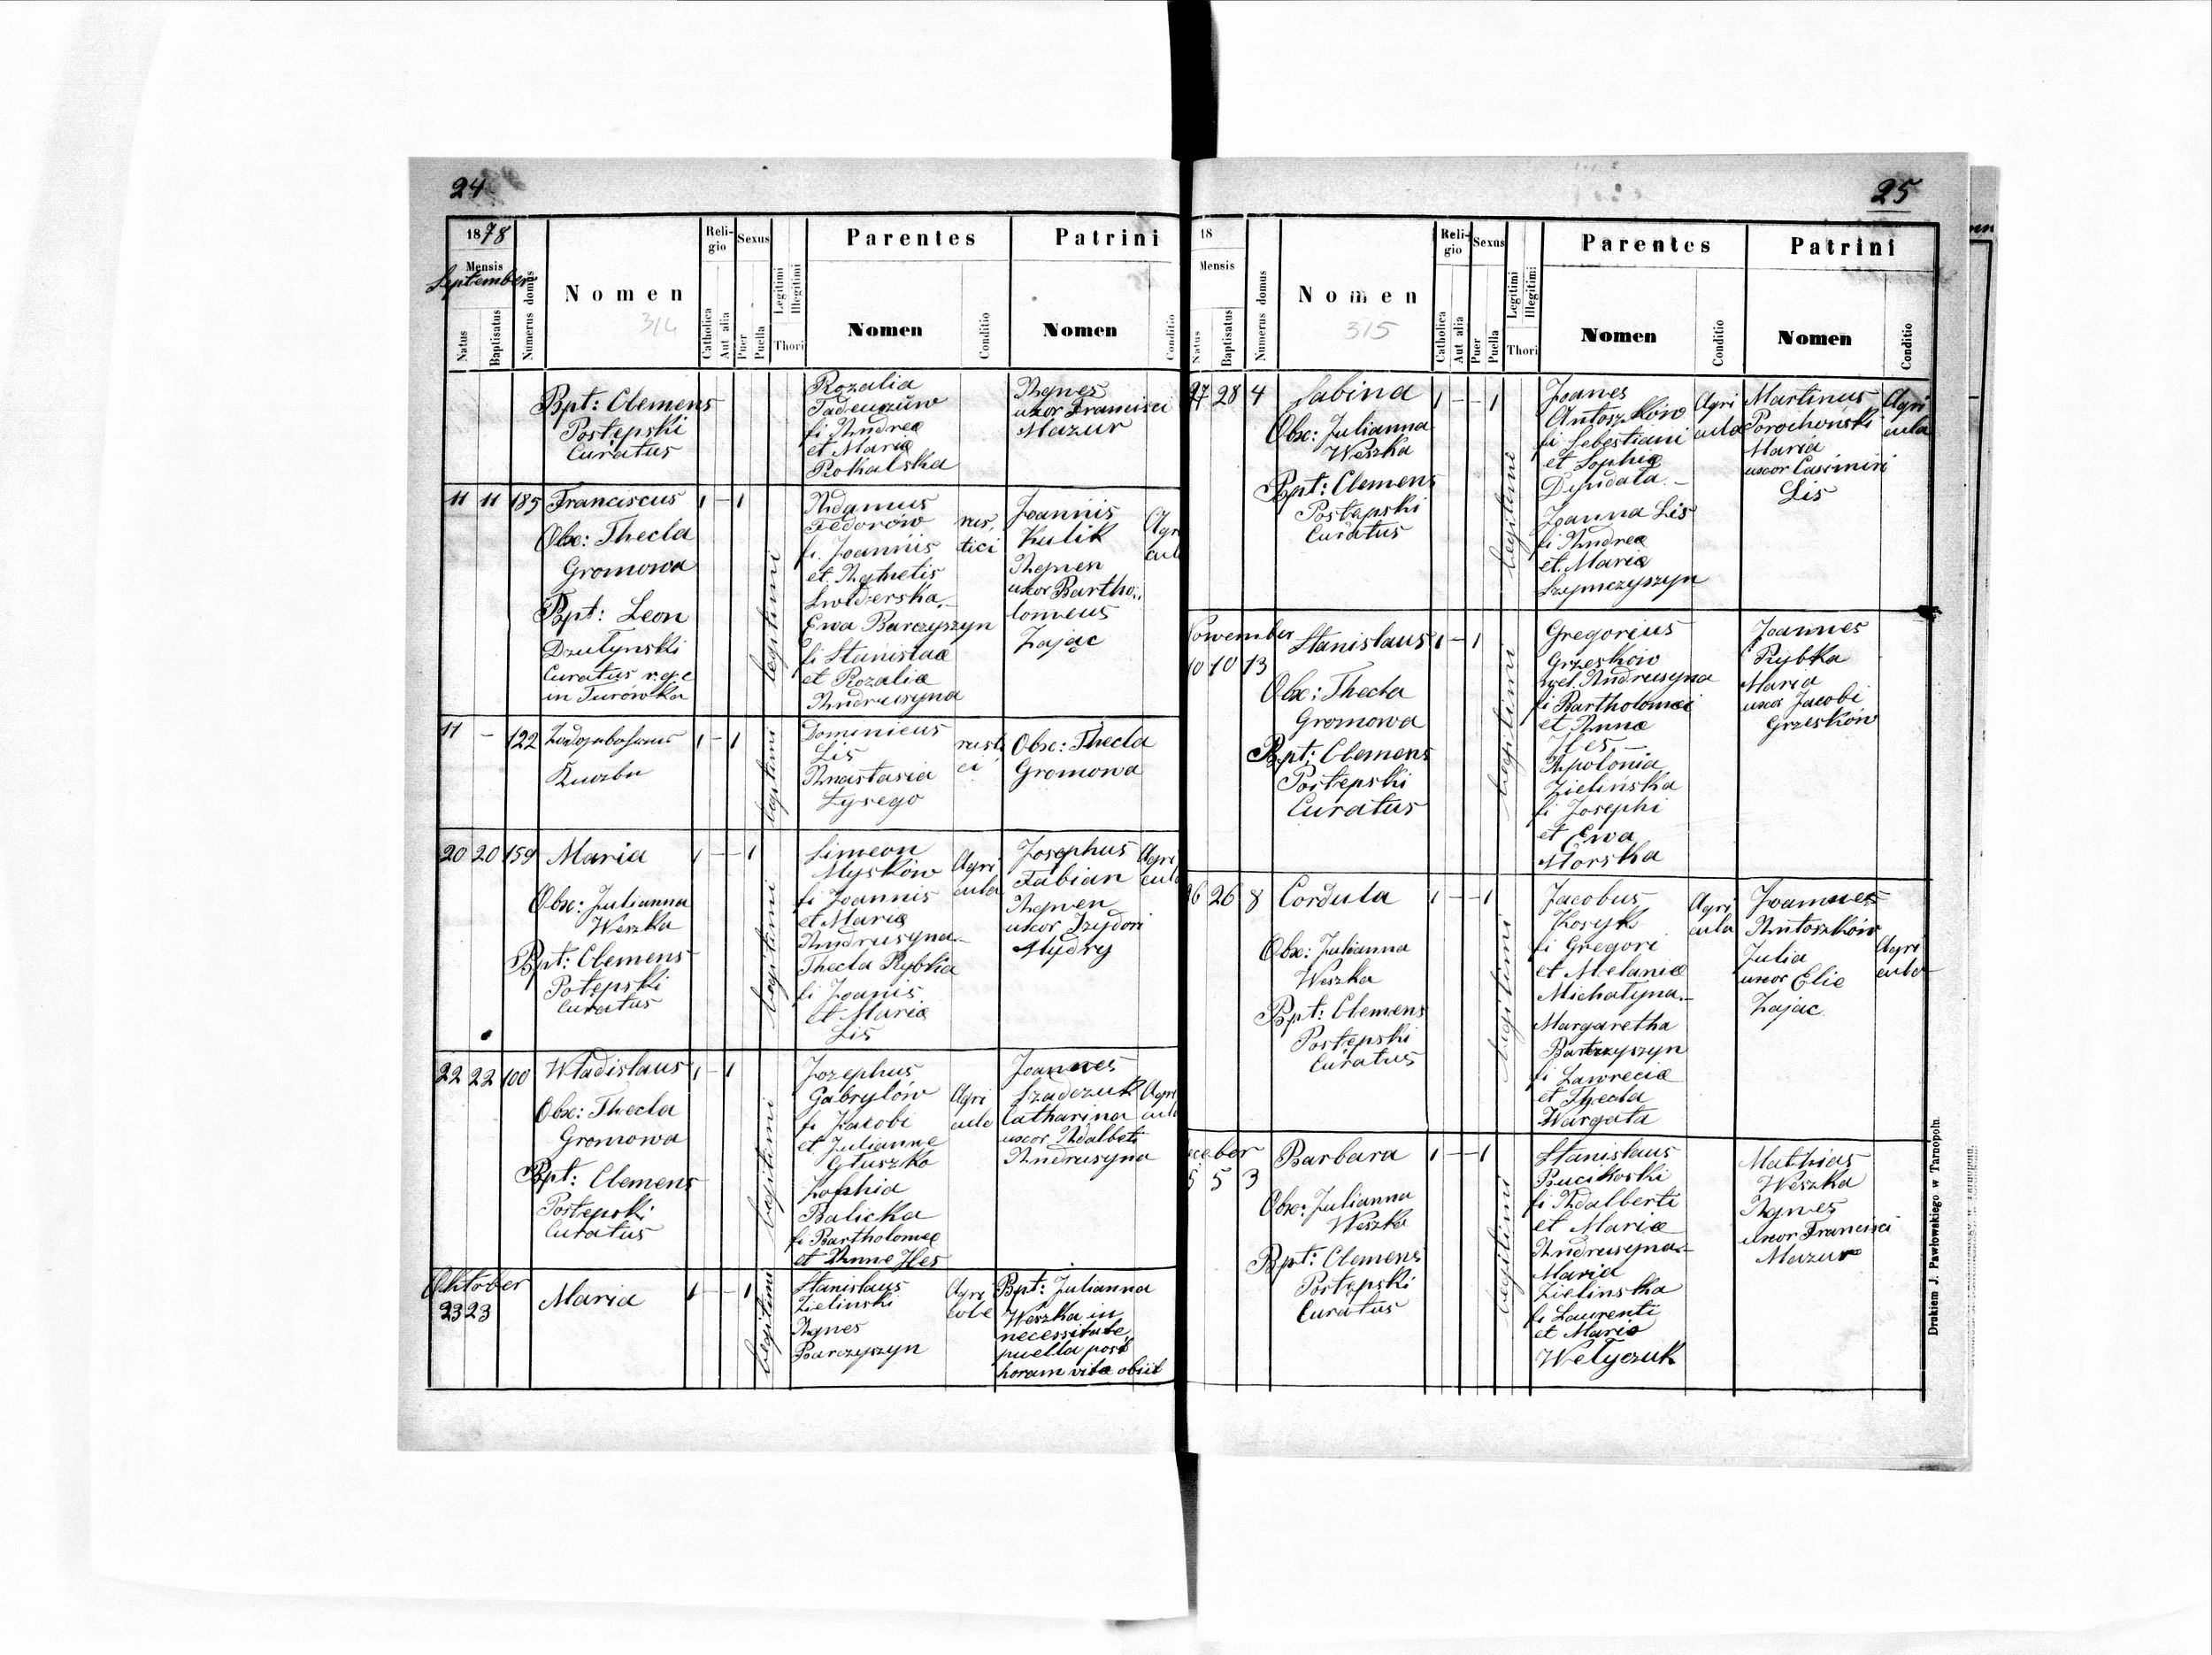 24
1878
Mensis
September
Natus
Baptisatus
Numerus domus
Nomen
314
Religio
Catholica
Aut alia
Sexus
Puer
Puella
Legitimi
Illegitimi
Thori
Parentes
Nomen
Conditio
Patrini
Nomen
Conditio
Bpt: Clemens
Postępski
Curatus
Rozalia
Tadeuszów
fi Andreæ
et Mariæ
Rokalska
Agnes
uxor Francisci
Mazur
11 11 185 Franciscus 1 - 1
Obx: Thecla
Gromowa
Bpt: Leon
Dzułynski
Curatus r.g.c
in Turówka
legitimi
Adamus
Fedorów
fi. Joannis
et Agnetis
Swiderska.-
Ewa Barczyszyn
fi Stanislaæ
et Rozaliæ
Andrusyna
rus,
tici
Joannis
Kulik
Agnen
uxor Bartho,,
lomeus
Zając
Agri
cul
11 - 122
1 - 1
legitimi
Dominicus
Lis
Anastasia
Łysego
rusti
ci
Obx: Thecla
Gromowa
20 20 159 Maria 1 - - 1
Obx: Julianna
Weszka
Bpt: Clemens
Potępski
Curatus
legitimi
Simeon
Myśków
fi Joannis
et Mariæ
Andrusyna.-
Thecla Rybkia
fi Joanis
et Mariæ
Lis
Agri
cula
Josephus
Fabian
Agnen
uxor Izydori
Mydry
Agri
cul
22 22 100 Władislaus 1 - 1
Obx: Thecla
Gromowa
Bpt: Clemens
Postepski
Curatus
legitimi
Jozephus
Gabrylów
fi Jacobi
et Julianne
Głuszko
Zophia
Balicka
fi Bartholomeæ
et Anne Hes
Agri
culæ
Joannes
Szadczuk
Catharina
uxor Adalbeti
Andrusyna
Agri
cul
Oktober
23 23 Maria 1 - - 1
legitimi
Stanislaus
Zielinski
Agnes
Barczyszyn
Agri
colæ
Bpt: Julianna
Weszka in
necessitate,
puella post
horam vitæ obiit
25
18
Mensis
Natus
Baptisatus
Numerus domus
Nomen
315
Religio
Catholica
Aut alia
Sexus
Puer
Puella
Legitimi
Illegitimi
Thori
Parentes
Nomen
Conditio
Patrini
Nomen
Conditio
27 28 4 Sabina 1 - - 1
Obx: Julianna
Weszka
Bpt: Clemens
Postapski
Curatus
legitimi
Joanes
Antoszków
fi Sebestiani
et Sophiæ
Joanna Lis
fi Andreæ
et Mariæ
Szymczyszyn
Agri
cula
Martinus
Porochoński
Maria
uxor Casimiri
Lis
Agri
cula
November
10 10 13 Stanislaus 1 - 1
Obx: Thecla
Gromowa
Bpt: Clemens
Postępski
Curatus
legitimi
Gregorius
Grzesków
wel. Andrusyna
fi Bartholomæi
et Annæ
Hes -
Apolonia
Zielińska
fi Josephi
et Ewa
Morska
Joannes
Rybka
Maria
uxor Jacobi
Grzesków
26 26 8 Cordula 1 - - 1
Obx: Julianna
Weszka
Bpt: Clemens
Postepski
Curatus
legitimi
Jacobus
Kosyk
fi Gregori
et Melaniæ
Michałyna.-
Margaretha
Bartczyszyn
fi Lawreciæ
et Thecla
Wargata
Agri
cula
Joannes
Antoszków
Julia
uxor Elie
Zajac
Agri
cula
ceber
5 5 3 Barbara 1 - 1
Obx: Julianna
Weszka
Bpt: Clemens
Postępski
Curatus
legitimi
Stanislaus
Bucikoski
fi Adalberti
et Mariæ
Andrusyna.-
Maria
Zielinska
fi Laurenti
et Maria
Wełyczuk
Mathias
Weszka
Agnes
uxor Francisci
Mazur
Drukiem J. Pawłowskiego w Tarnopolu.